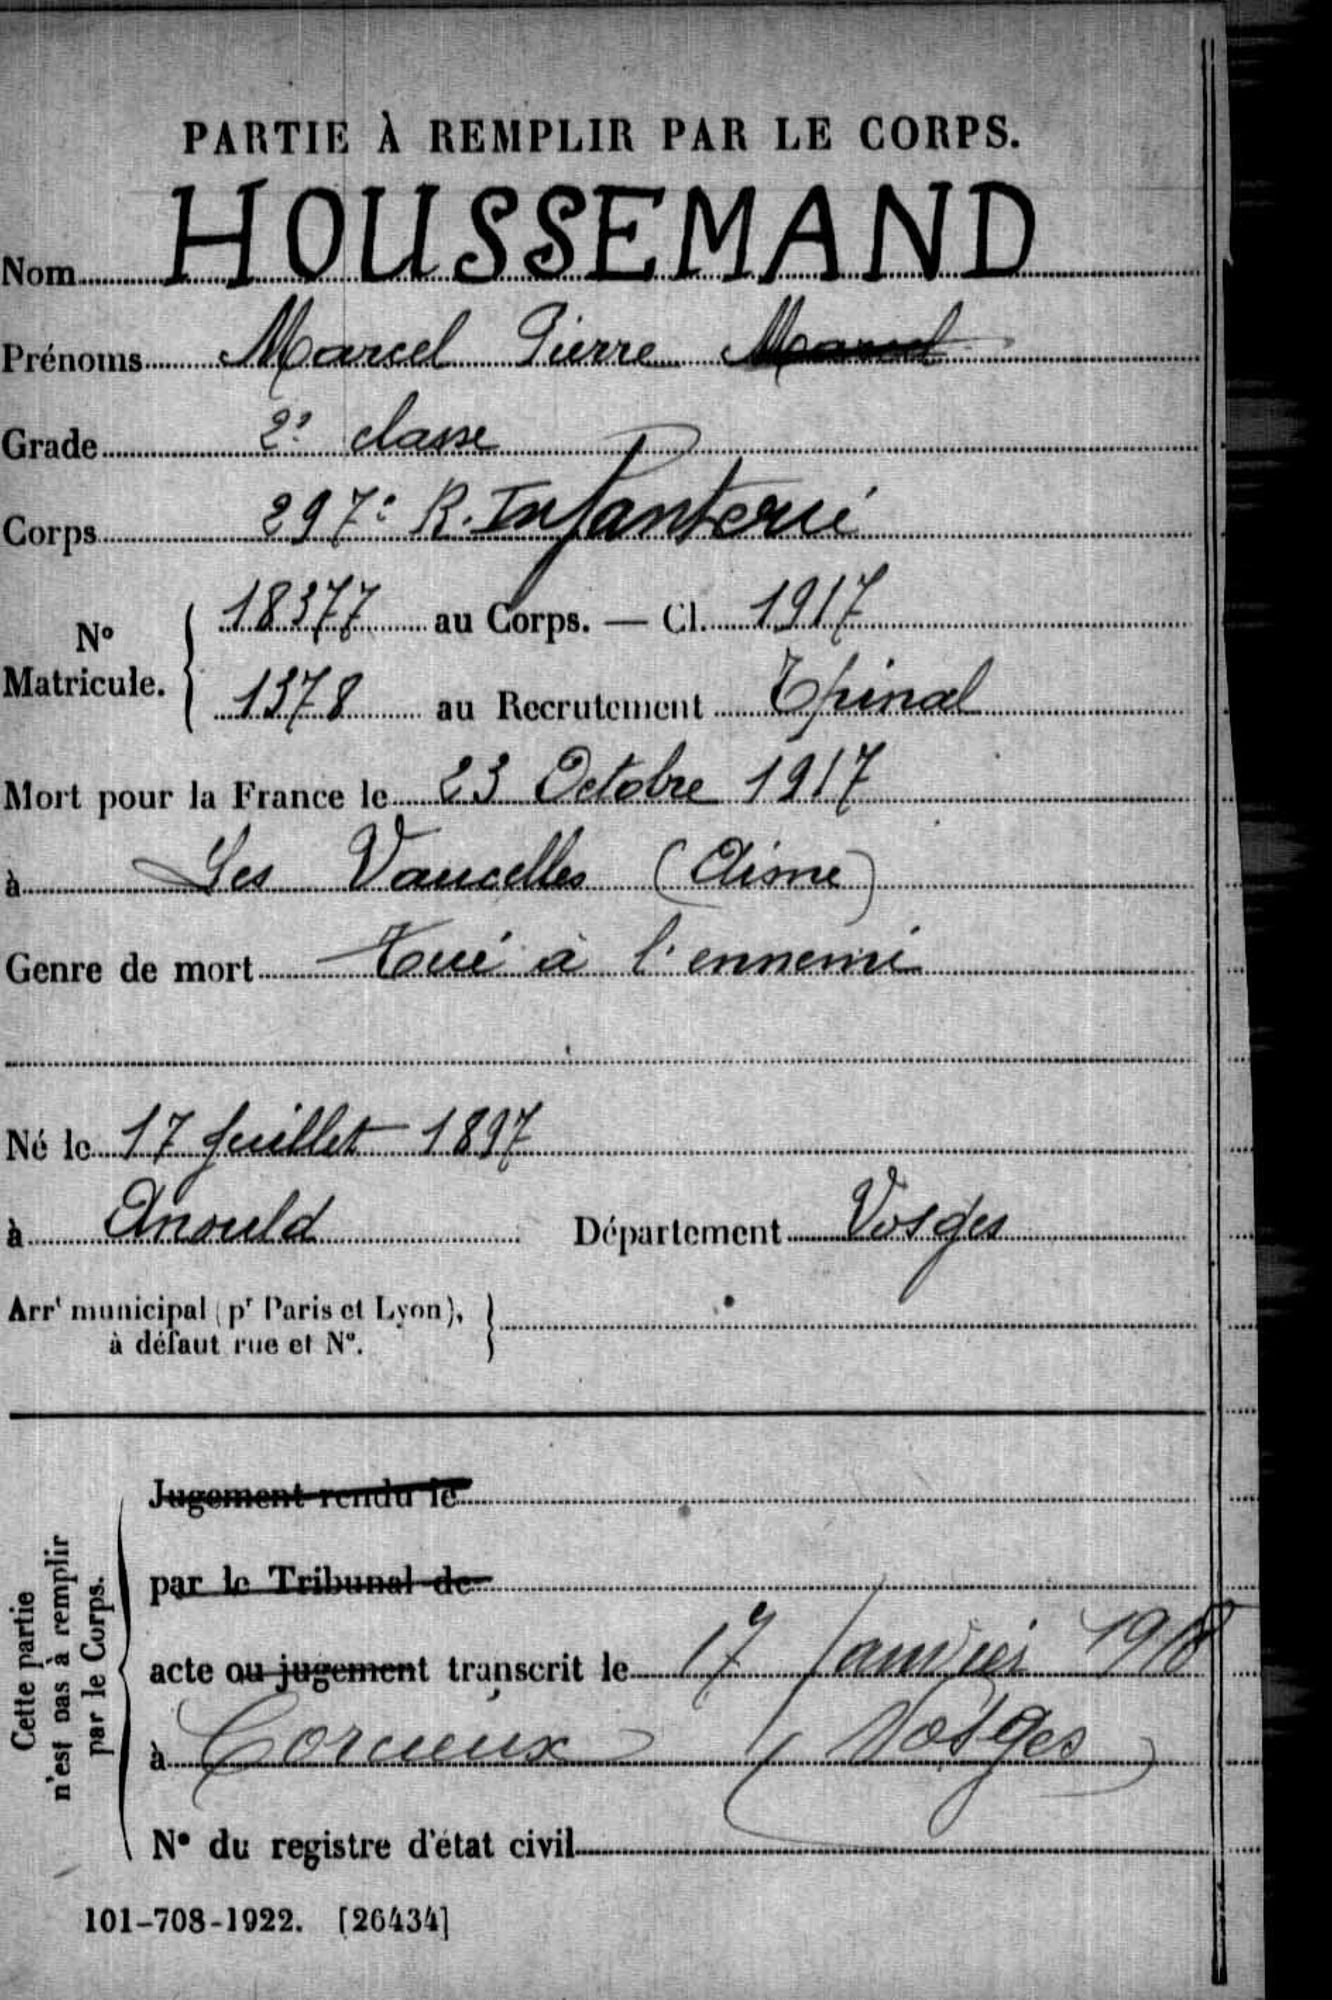 PARTIE À REMPLIR PAR LE CORPS.
Nom HOUSSEMAND
Prénoms Marcel Pierre Marcel
Grade 2e classe
Corps 297e R. Infanterie
N° Matricule. 18377 au Corps. — Cl. 1917
1378 au Recrutement Epinal
Mort pour la France le 23 Octobre 1917
à Les Vaucelles (Aisne)
Genre de mort Tué à l'ennemi
Né le 17 Juillet 1897
à Anould Département Vosges
Arrt municipal (pr Paris et Lyon),
à défaut rue et N°.
Cette partie
n'est pas à remplir
par le Corps.
Jugement rendu le
par le Tribunal de
acte ou jugement transcrit le 17 Janvier 1918
à Corcieux (Vosges)
N° du registre d'état civil
101-708-1922. [26434]